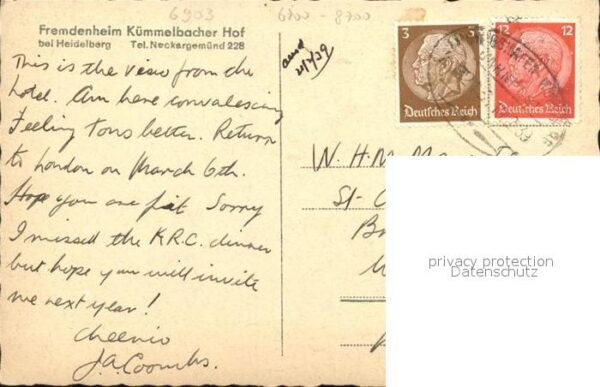 6903
6900 - 8900
Fremdenheim Kümmelbacher Hof
bei Heidelberg Tel. Neckargemünd 228
This is the view from the
hotel. Am here convalescing
Feeling tons better. Return
to London on March 6th.
Hope you are fit Sorry
I missed the K.R.C. dinner
but hope you will invite
me next year!
cheerio
J.A. Coombs.
3 3
Deutsches Reich
12 12
Deutsches Reich
W. H. M.
St-
privacy protection
Datenschutz